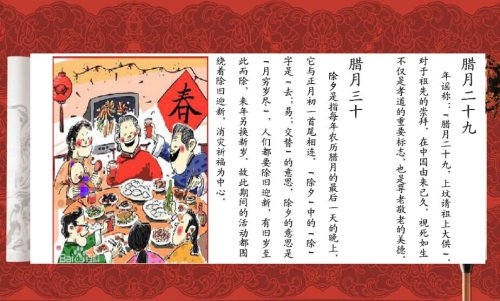 腊月二十九
年谣称：“腊月二十九，上坟请祖上大供”，
对于祖先的崇拜，在中国由来已久。视死如生
不仅是孝道的重要标志，也是尊老敬老的美德。
腊月三十
除夕是指每年农历腊月的最后一天的晚上，
它与正月初一首尾相连。“除夕”中的“除”
字是“去；易；交替”的意思，除夕的意思是
“月穷岁尽”，人们都要除旧迎新，有旧岁至
此而除，来年另换新岁，故此期间的活动都围
绕着除旧迎新，消灾祈福为中心。
春